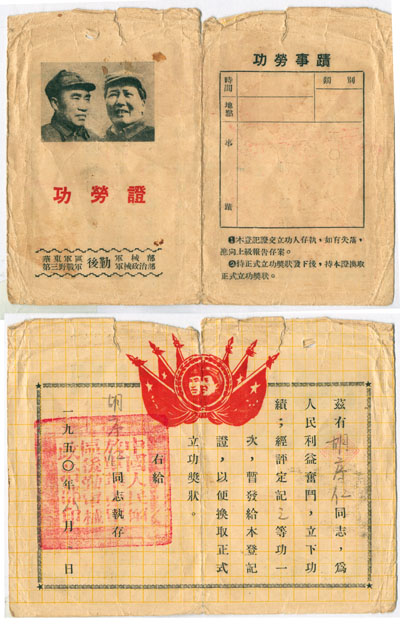 功勞證
華東軍區
第三野戰軍
後勤
軍械部
軍械政治部
功勞事蹟
時間
類別
地點
事
蹟
❶本登記證交立功人存執，如有失落，
應向上級報告存案。
❷待正式立功獎狀發下後，持本證換取
正式立功獎狀。
茲有胡彦仁同志，為
人民利益奮鬥，立下功
績；經評定記三等功一
次，暫發給本登記
證，以便換取正式
立功獎狀。
右給
胡彦仁同志執存
一九五〇年 月 日